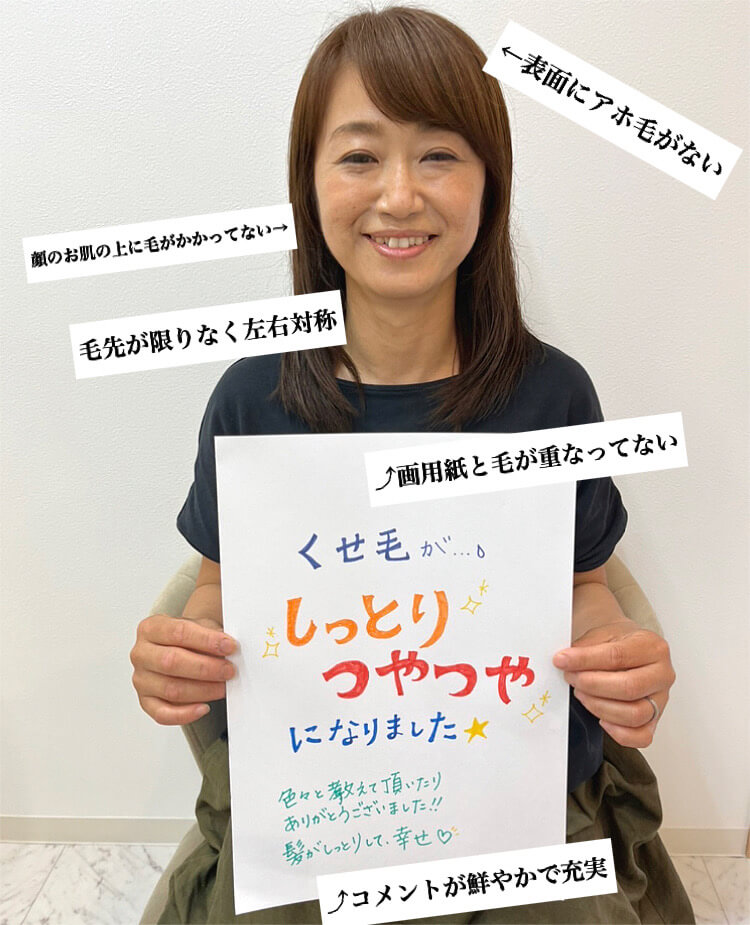 ←表面にアホ毛がない
顔のお肌の上に毛がかかってない→
毛先が限りなく左右対称
⤴画用紙と毛が重なってない
くせ毛が…
しっとり
つやつや
になりました★
色々と教えて頂いたり
ありがとうございました!!
髪がしっとりして、幸せ♡
⤴コメントが鮮やかで充実